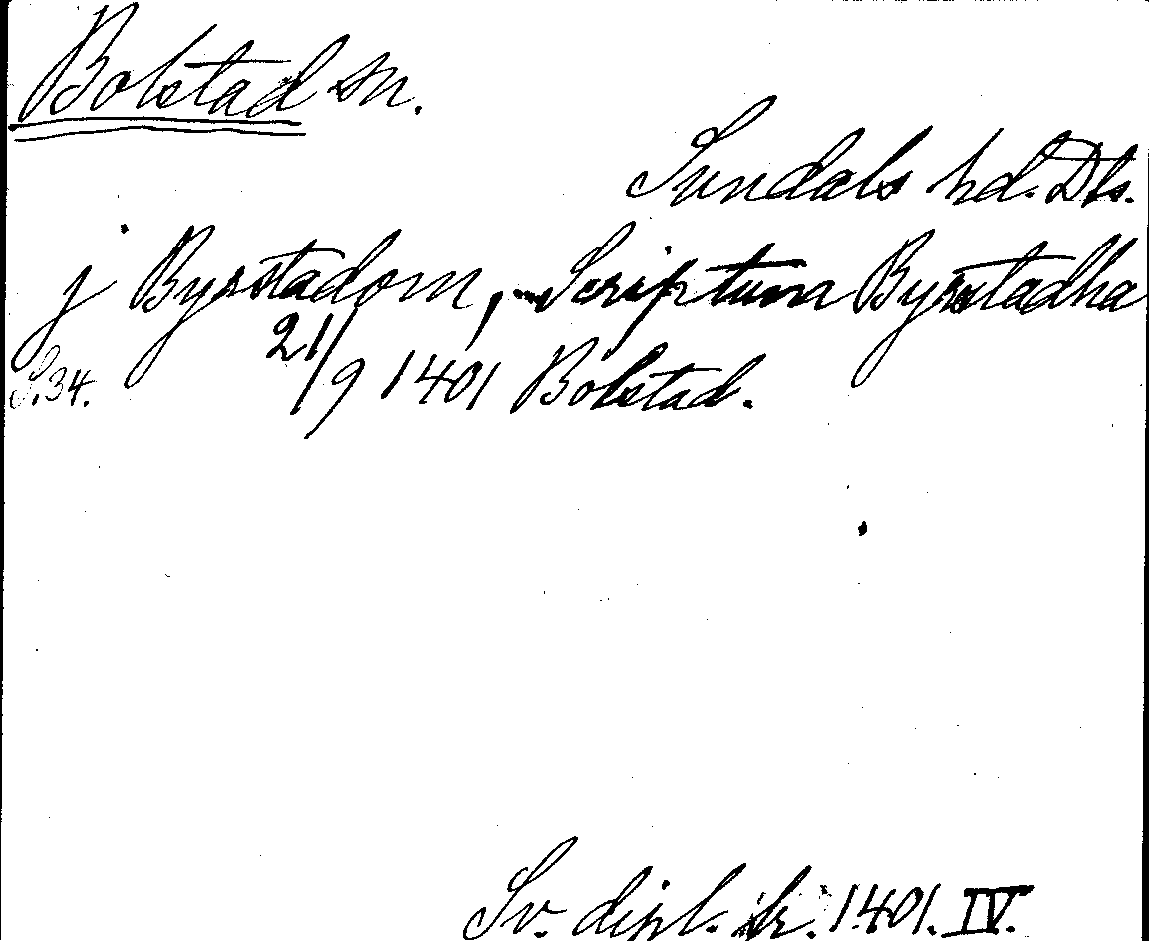 Bolstad sn.
Sundals hd. Dls.
j Byrstadom, Scriptum Byrstadha
S. 34. 21/9 1401 Bolstad.
Sv. dipl. fr. 1401. IV.